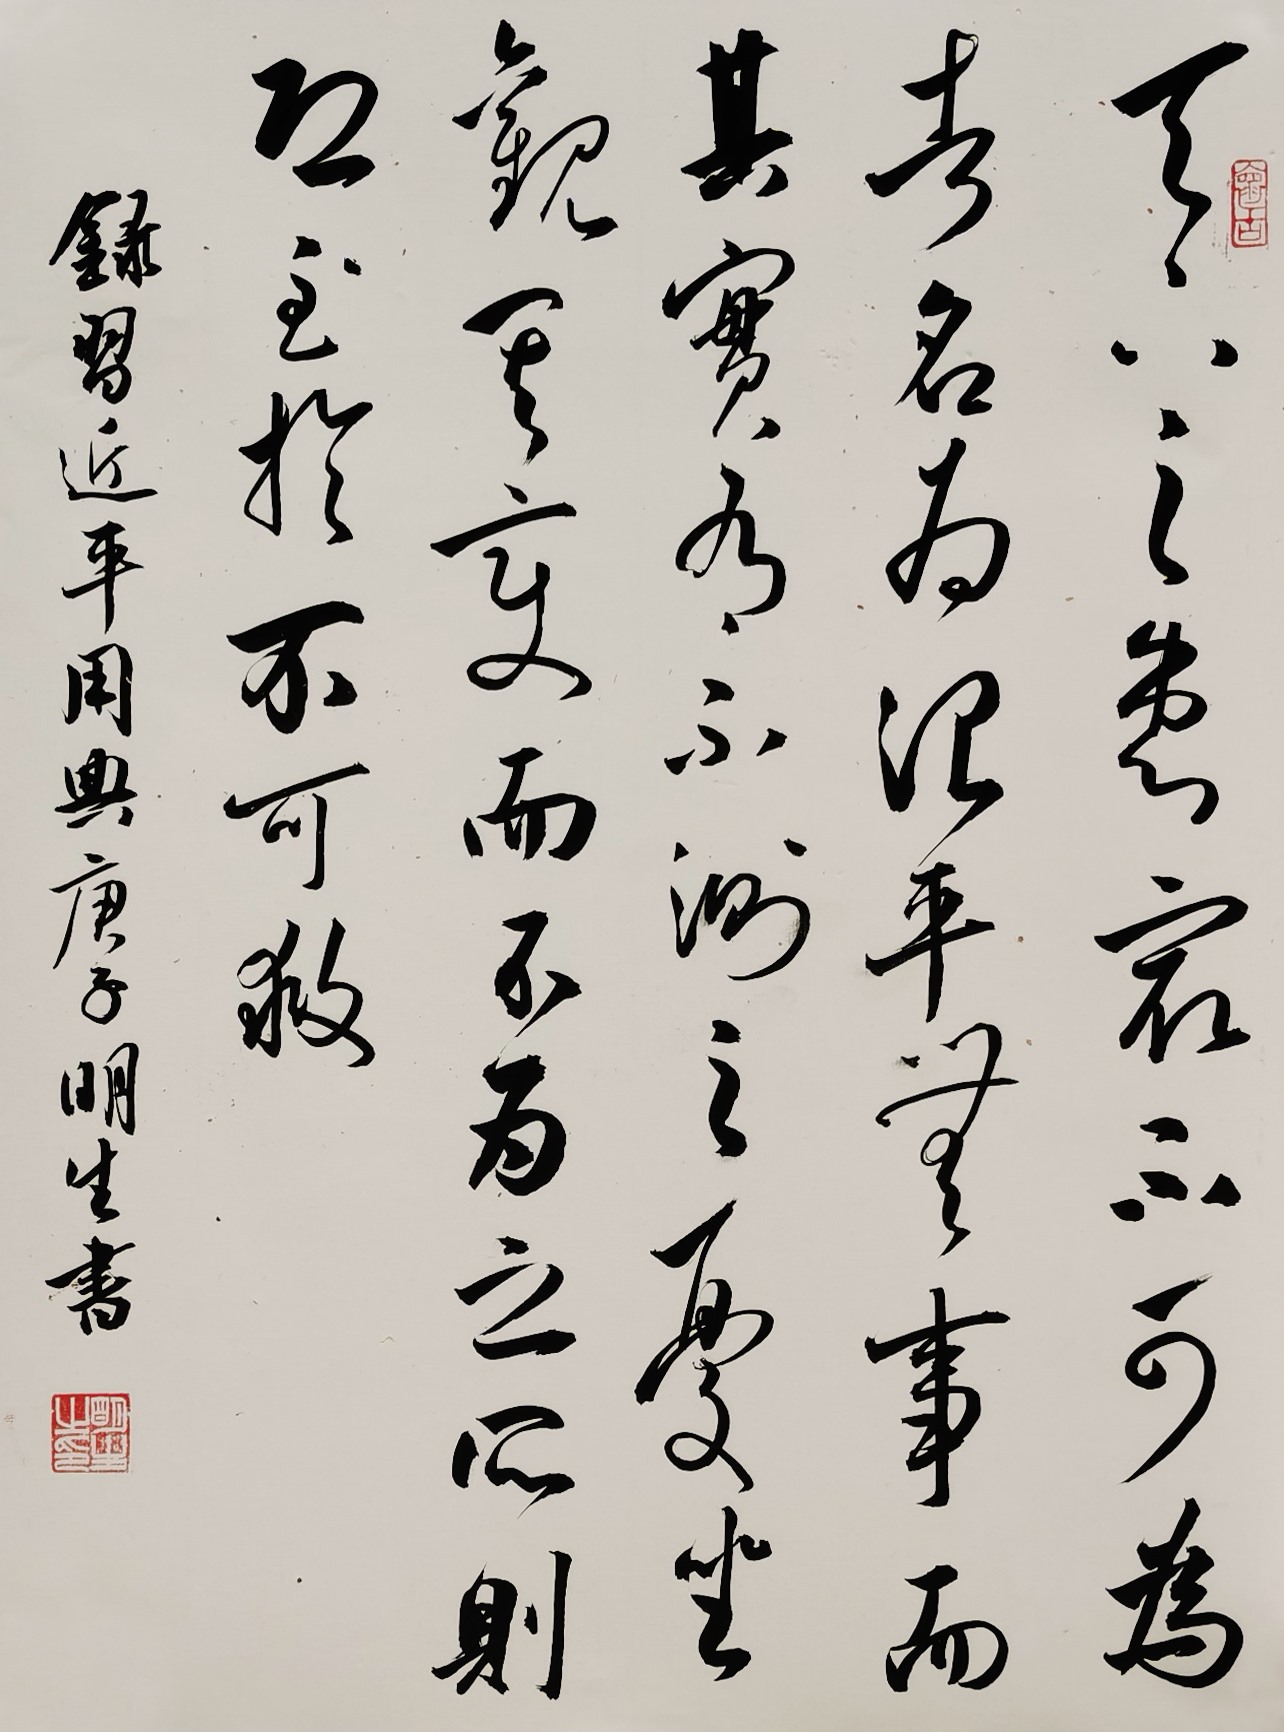 天下之患最不可為
者名為治平無事而
其實有不測之憂坐
觀其變而不為之所則
恐至於不可救
錄習近平用典庚子明生書
明生之印